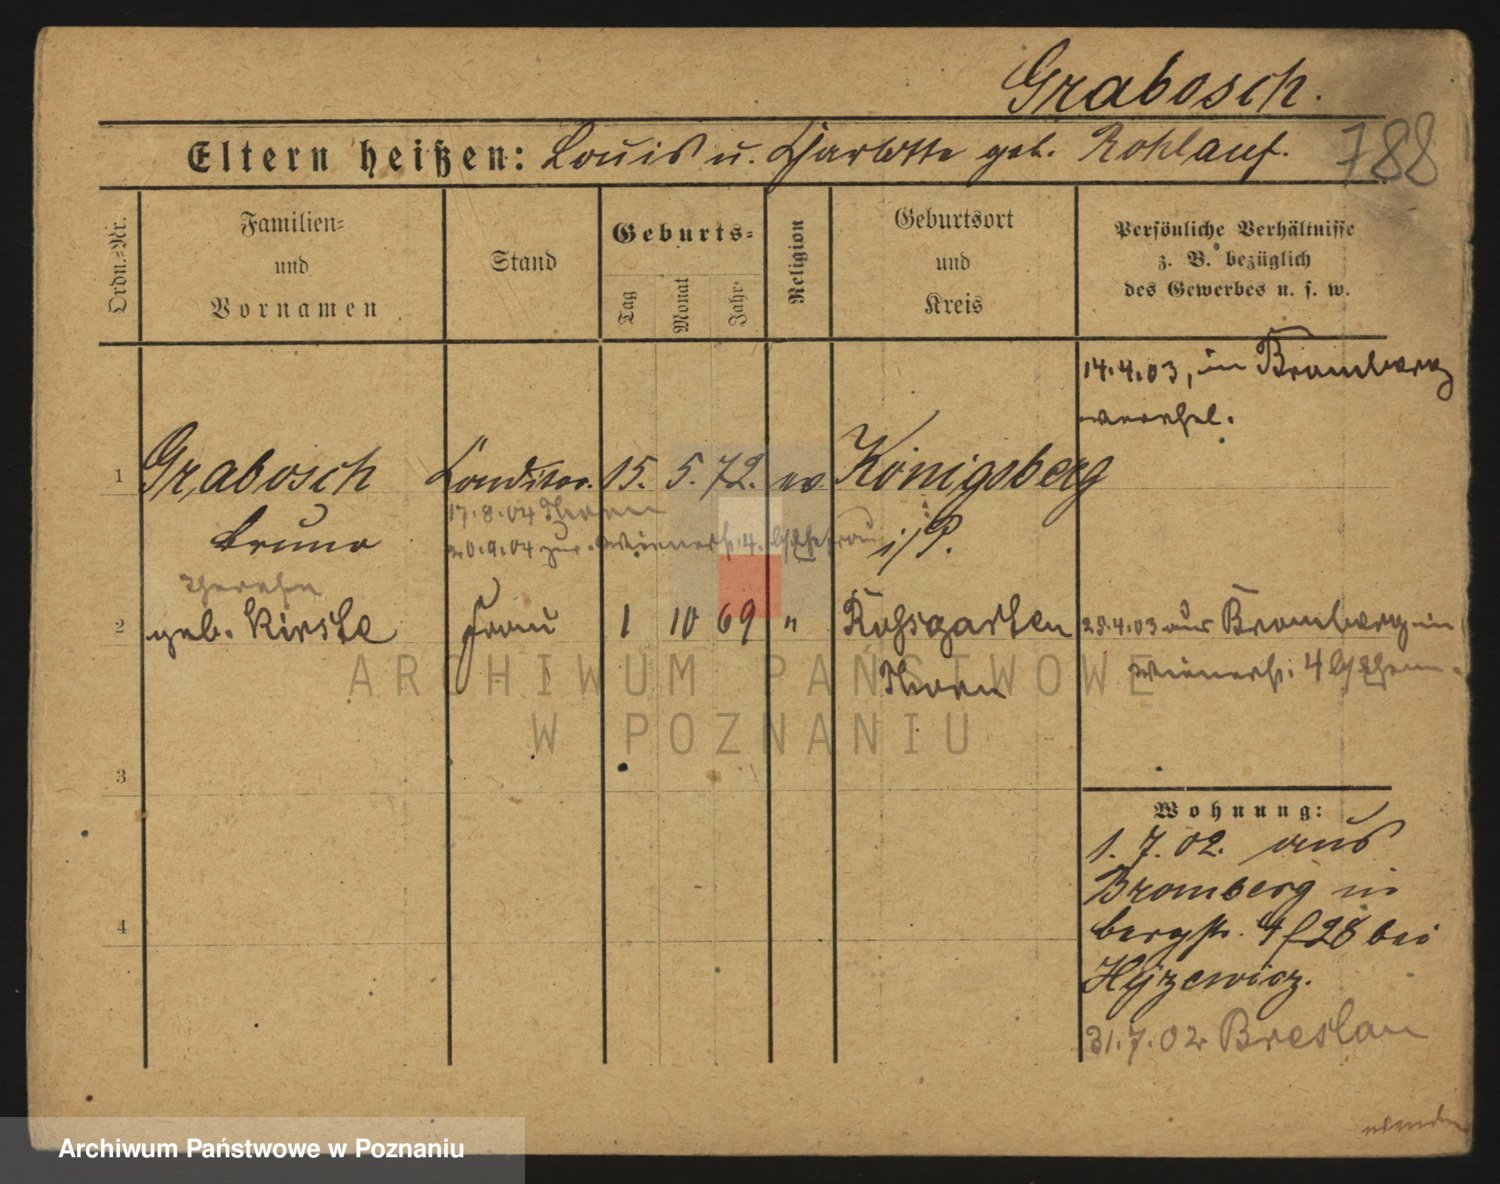 Grabosch.
Eltern heißen: Louis u. Charlotte geb. Rohlauf.
788
Ordn.-Nr.
Familien-
und
Vornamen
Stand
Geburts-
Tag
Monat
Jahr
Religion
Geburtsort
und
Kreis
Persönliche Verhältnisse
z. B. bezüglich
des Gewerbes u. s. w.
14.4.03, in Bromberg
verehel.
1
Grabosch
Conditor.
15.
5.
72.
ev
Königsberg
Bruno
i/P.
17.8.04 Thorn
20.9.04 zur.
2
geb. Kirste
Frau
1
10
69
"
Roßgarten
Thorn
25.4.03 aus Bromberg
3
4
Wohnung:
1.7.02. aus
Bromberg in
Bergstr. 28 bei
Hyzewicz.
31.7.02 Breslau
wenden
ARCHIWUM PAŃSTWOWE
W POZNANIU
Archiwum Państwowe w Poznaniu